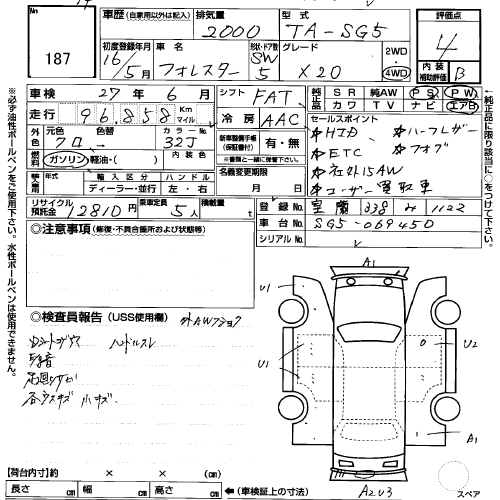 No.
187
車歴 (自家用以外は記入)
排気量
2000
型式
TA-SG5
評価点
4
内装
補助評価
B
初度登録年月
16年
5月
車名
フォレスター
形状・ドア数
SW
5
グレード
X20
2WD
4WD
車検
27年 6月
シフト
FAT
純正品
SR 純AW PS PW
カワ TV ナビ エアB
走行
96,858
Km
マイル
冷房
AAC
セールスポイント
HID
ハーフレザー
ETC
フォグ
社外15AW
ユーザー買取車
外色
元色
クロ
色替
カラーNo.
32J
新車整備手帳
(保証書付)
有・無
※書類一緒に完備の事。
燃料
ガソリン・軽油・( )
内装色
名義変更期限
月 日
輸入車
年式
輸入区分
ハンドル
ディーラー・並行
左・右
リサイクル
預託金
12810円
乗車定員
5人
積載量
t
登録No.
室蘭 338 み 1122
車台No.
SG5-069450
シリアルNo.
◎注意事項 (修復・不具合箇所および状態等)
◎検査員報告 (USS使用欄)
外AWナショウ
ハンドルスレ
足回りサビ
各ウスキズ 小キズ
A1
U1
U1
U2
A1
A2U3
スペア
【荷台内寸】約 × × (cm)
長さ cm 幅 cm 高さ cm
(車検証上の寸法)
※必ず油性ボールペンをご使用下さい。水性ボールペンは使用できません。
純正品に限り該当に○をつけて下さい。